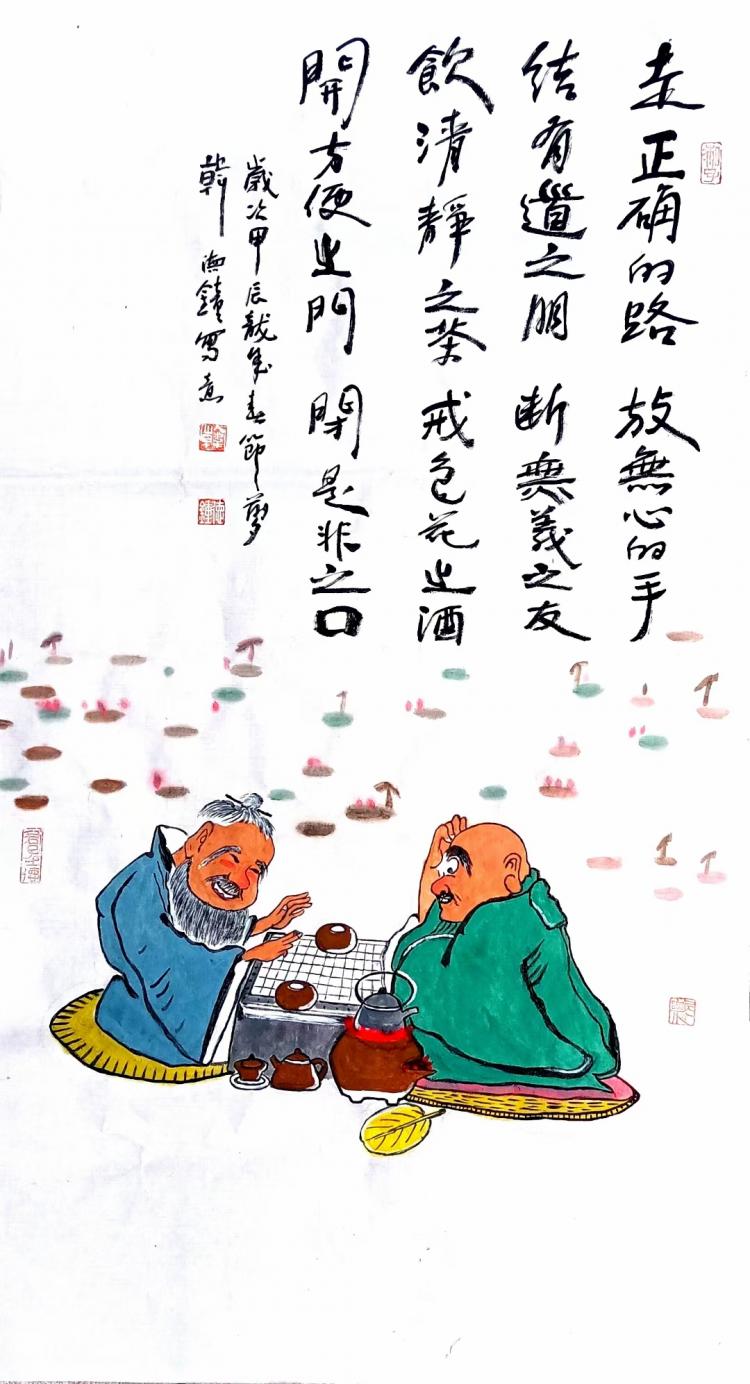 走正确的路 放無心的手
结有道之朋 断無義之友
飲清靜之茶 戒色花之酒
開方便之門 閉是非之口
歲次甲辰龍年春節
韓 寫意